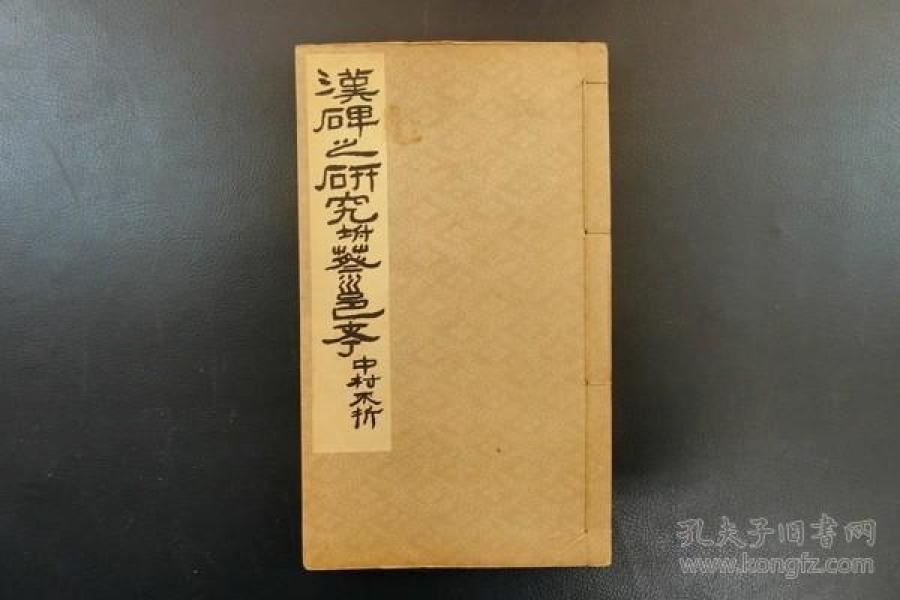 漢碑之研究坿蔡邕考
中村不折
孔夫子旧书网
www.kongfz.com